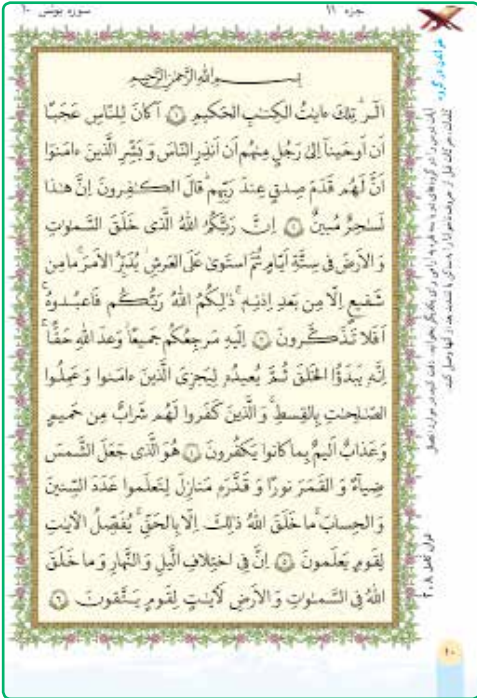 جزء ۱۱
سوره یونس ۱۰
بِسمِ اللهِ الرَّحمٰنِ الرَّحیمِ
الٓر تِلكَ ءایٰتُ الكِتٰبِ الحَكیمِ ۱ اَكانَ لِلنّاسِ عَجَبًا
اَن اَوحَینآ اِلیٰ رَجُلٍ مِنهُم اَن اَنذِرِ النّاسَ وَ بَشِّرِ الَّذینَ ءامَنوا
اَنَّ لَهُم قَدَمَ صِدقٍ عِندَ رَبِّهِم قالَ الكٰفِرونَ اِنَّ هٰذا
لَسٰحِرٌ مُبینٌ ۲ اِنَّ رَبَّكُمُ اللهُ الَّذی خَلَقَ السَّمٰوٰتِ
وَ الاَرضَ فی سِتَّةِ اَیّامٍ ثُمَّ استَویٰ عَلَی العَرشِ یُدَبِّرُ الاَمرَ ما مِن
شَفیعٍ اِلّا مِن بَعدِ اِذنِهٖ ذٰلِكُمُ اللهُ رَبُّكُم فَاعبُدوهُ
اَفَلا تَذَكَّرونَ ۳ اِلَیهِ مَرجِعُكُم جَمیعًا وَعدَ اللهِ حَقًّا
اِنَّهٗ یَبدَؤُا الخَلقَ ثُمَّ یُعیدُهٗ لِیَجزِیَ الَّذینَ ءامَنوا وَ عَمِلُوا
الصّٰلِحٰتِ بِالقِسطِ وَ الَّذینَ كَفَروا لَهُم شَرابٌ مِن حَمیمٍ
وَ عَذابٌ اَلیمٌ بِما كانوا یَكفُرونَ ۴ هُوَ الَّذی جَعَلَ الشَّمسَ
ضِیآءً وَ القَمَرَ نورًا وَ قَدَّرَهٗ مَنازِلَ لِتَعلَموا عَدَدَ السِّنینَ
وَ الحِسابَ ما خَلَقَ اللهُ ذٰلِكَ اِلّا بِالحَقِّ یُفَصِّلُ الآیٰتِ
لِقَومٍ یَعلَمونَ ۵ اِنَّ فِی اختِلافِ الَّیلِ وَ النَّهارِ وَ ما خَلَقَ
اللهُ فِی السَّمٰوٰتِ وَ الاَرضِ لَآیٰتٍ لِقَومٍ یَتَّقونَ ۶
قرآن کامل ۲۰۸
۲۰